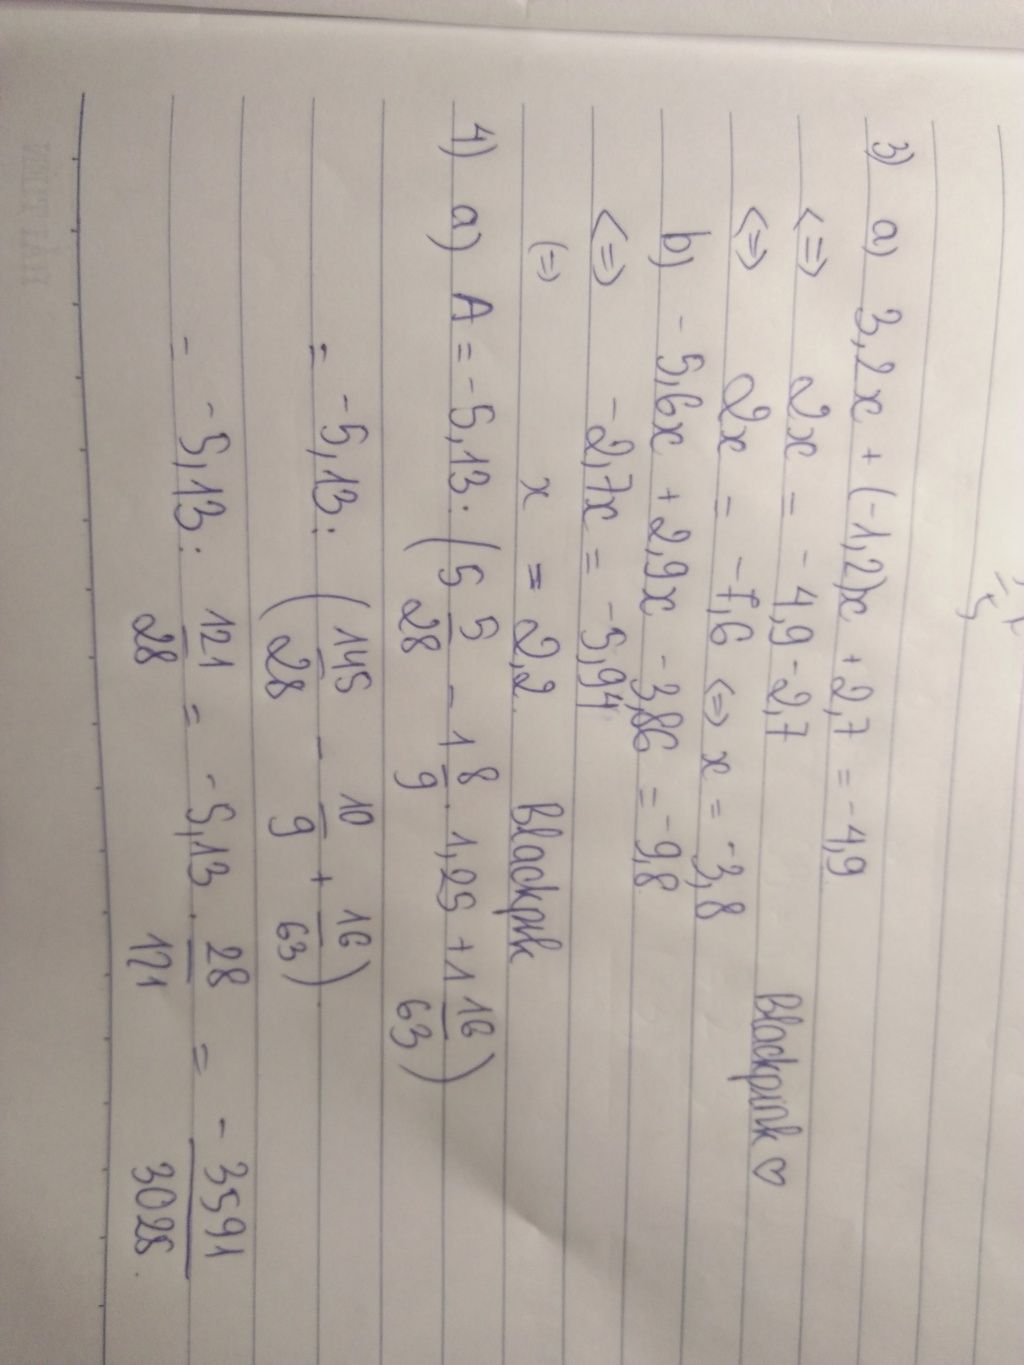 3) a) 3,2x + (-1,2)x + 2,7 = -4,9
<=> 2x = -4,9-2,7
<=> 2x = -7,6 <=> x = -3,8 Blackpink ♡
b) -5,6x + 2,9x - 3,86 = -9,8
<=> -2,7x = -5,94
(=) x = 2,2. Blackpink
4) a) A = -5,13 : (5 5/28 - 1 8/9 . 1,25 + 1 16/63)
= -5,13 : (145/28 - 10/9 + 16/63)
- -5,13 : 121/28 = -5,13 . 28/121 = -3591/3025.